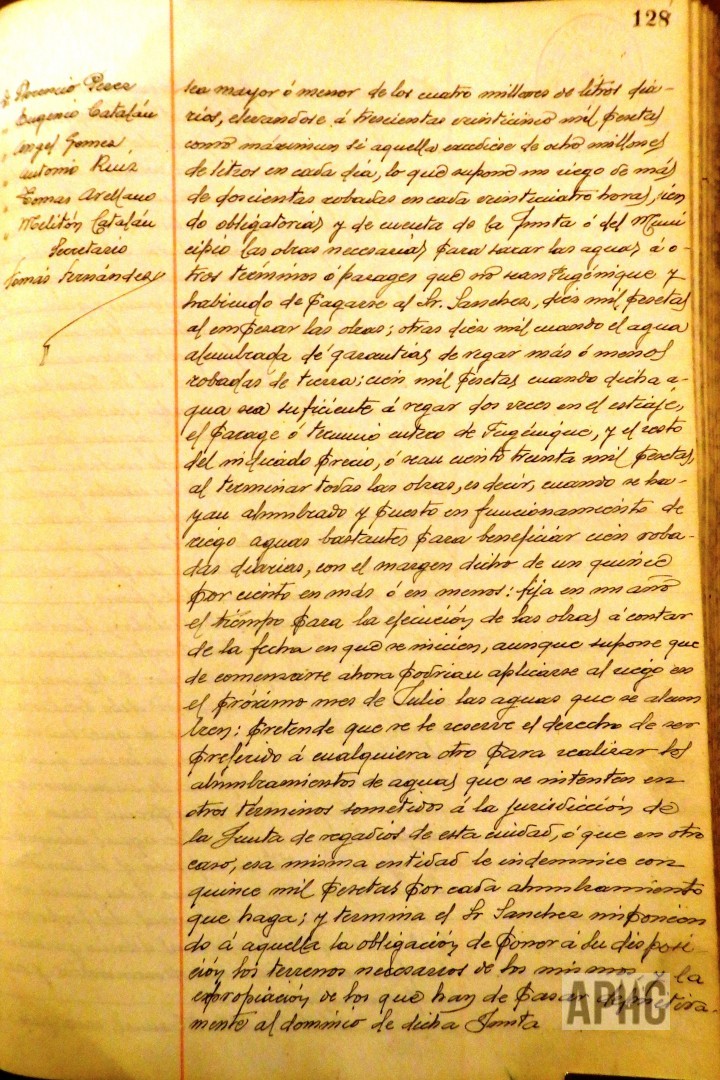 128
Florencio Perez
Eugenio Catalán
Angel Gomez
Antonio Ruiz
Tomas Arellano
Melitón Catalán
Secretario
Tomás Fernández
sea mayor ó menor de los cuatro millares de litros dia-
rios, elevandose á trescientas veinticinco mil pesetas
como máximun si aquella excediese de ocho millones
de litros en cada día, lo que supone un riego de más
de doscientas robadas en cada veinticuatro horas, sien
do obligatorias y de cuenta de la Junta ó del Muni
cipio las obras necesarias para sacar las aguas á o-
tros terminos ó parages que no sean Fugénique y
habiendo de pagarse al Sr. Sanchez, diez mil pesetas
al empezar las obras; otras diez mil cuando el agua
alumbrada dé garantias de regar más ó menos
robadas de tierra; cien mil pesetas cuando dicha a-
gua sea suficiente á regar dos veces en el estiaje,
el parage ó termino entero de Fugénique, y el resto
del indicado precio, ó sean ciento treinta mil pesetas,
al terminar todas las obras, es decir, cuando se ha-
yan alumbrado y puesto en funcionamiento de
riego aguas bastantes para beneficiar cien roba-
das diarias, con el margen dicho de un quince
por ciento en más ó en menos: fija en un año
el tiempo para la ejecución de las obras á contar
de la fecha en que se inicien, aunque supone que
de comenzarse ahora podrian aplicarse al riego en
el próximo mes de Julio las aguas que se alum
bren: pretende que se le reserve el derecho de ser
preferido á cualquiera otro para realizar los
alumbramientos de aguas que se intenten en
otros términos sometidos á la jurisdicción de
la Junta de regadios de esta ciudad, ó que en otro
caso, esa misma entidad le indemnice con
quince mil pesetas por cada alumbramiento
que haga; y termina el Sr Sanchez imponien
do á aquella la obligación de poner á su disposi
ción los terrenos necesarios de los mismos y la
expropiación de los que han de pasar definitiva-
mente al dominio de dicha Junta
APHG